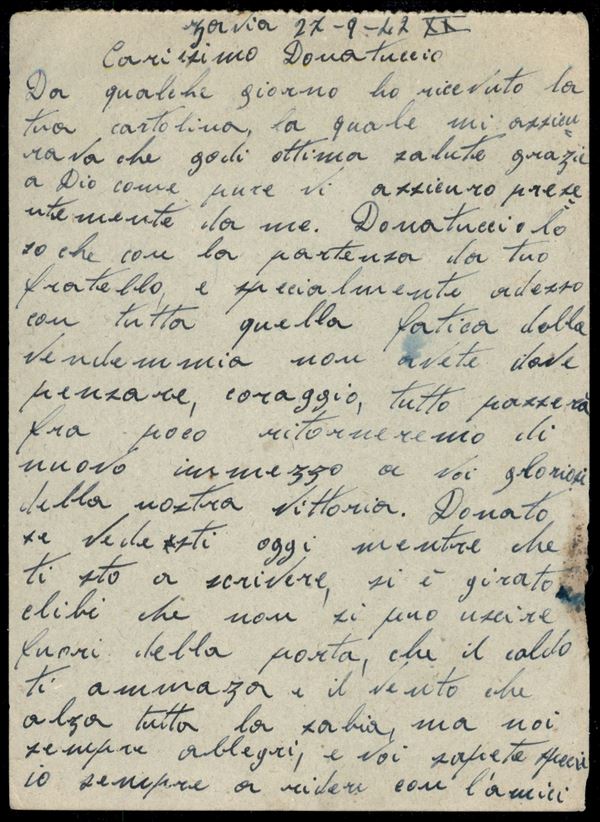 zavia 27-9-42 XX
Carissimo Donatuccio
Da qualche giorno ho ricevuto la
tua cartolina, la quale mi assicu
rava che godi ottima salute grazie
a Dio come pure vi assicuro prese
ntemente da me. Donatuccio lo
so che con la partenza da tuo
fratello, e specialmente adesso
con tutta quella fatica della
vendemmia non avete dove
penzare, coraggio, tutto passerà
fra poco ritorneremo di
nuovo immezzo a voi gloriosi
della nostra vittoria. Donato
se vedesti oggi mentre che
ti sto a scrivere, si è girato
clibi che non si puo uscire
fuori della porta, che il caldo
ti ammaza e il vento che
alza tutta la sabia, ma noi
sempre allegri, e voi sapete
io sempre a rideri con l'amici